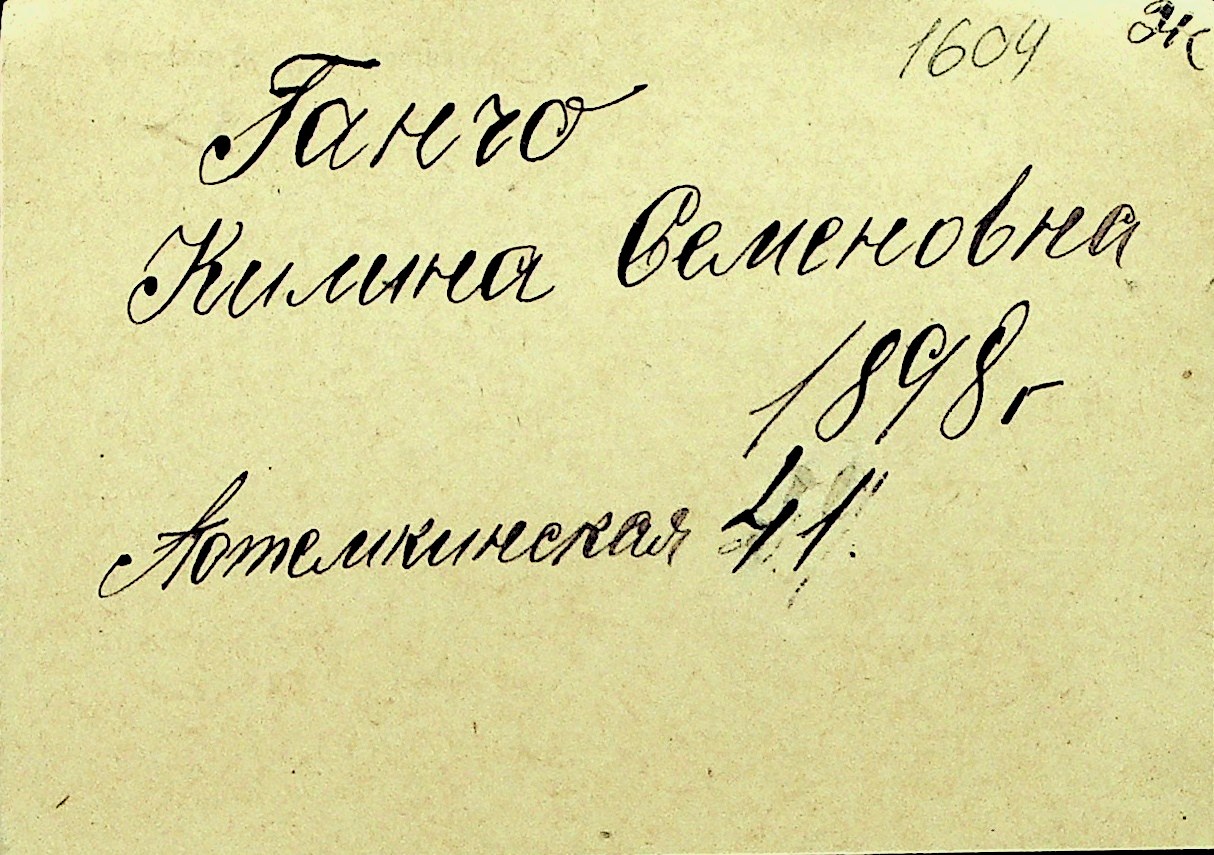 1604 Ж
Ганчо
Килина Семеновна
1898 г
Потемкинская 41.